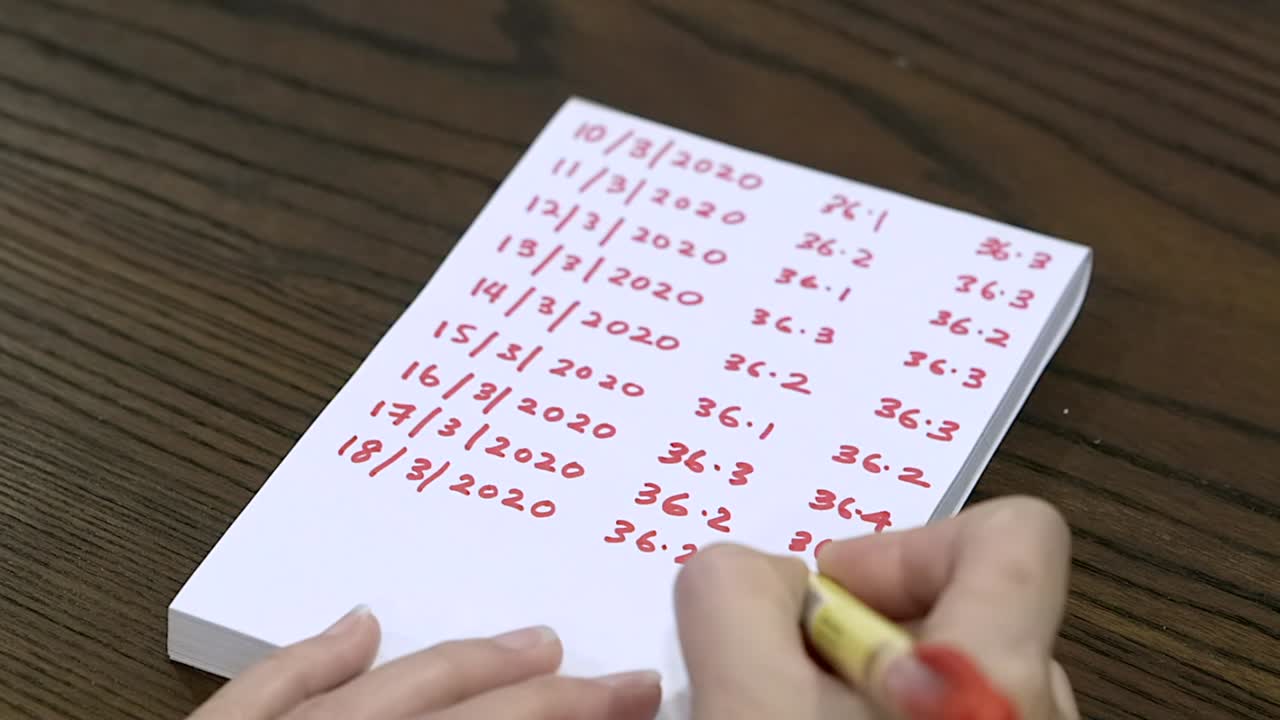 10/3/2020 36.1 36.3
11/3/2020 36.2 36.3
12/3/2020 36.1 36.2
13/3/2020 36.3 36.3
14/3/2020 36.2 36.3
15/3/2020 36.1 36.2
16/3/2020 36.3 36.4
17/3/2020 36.2
18/3/2020 36.2